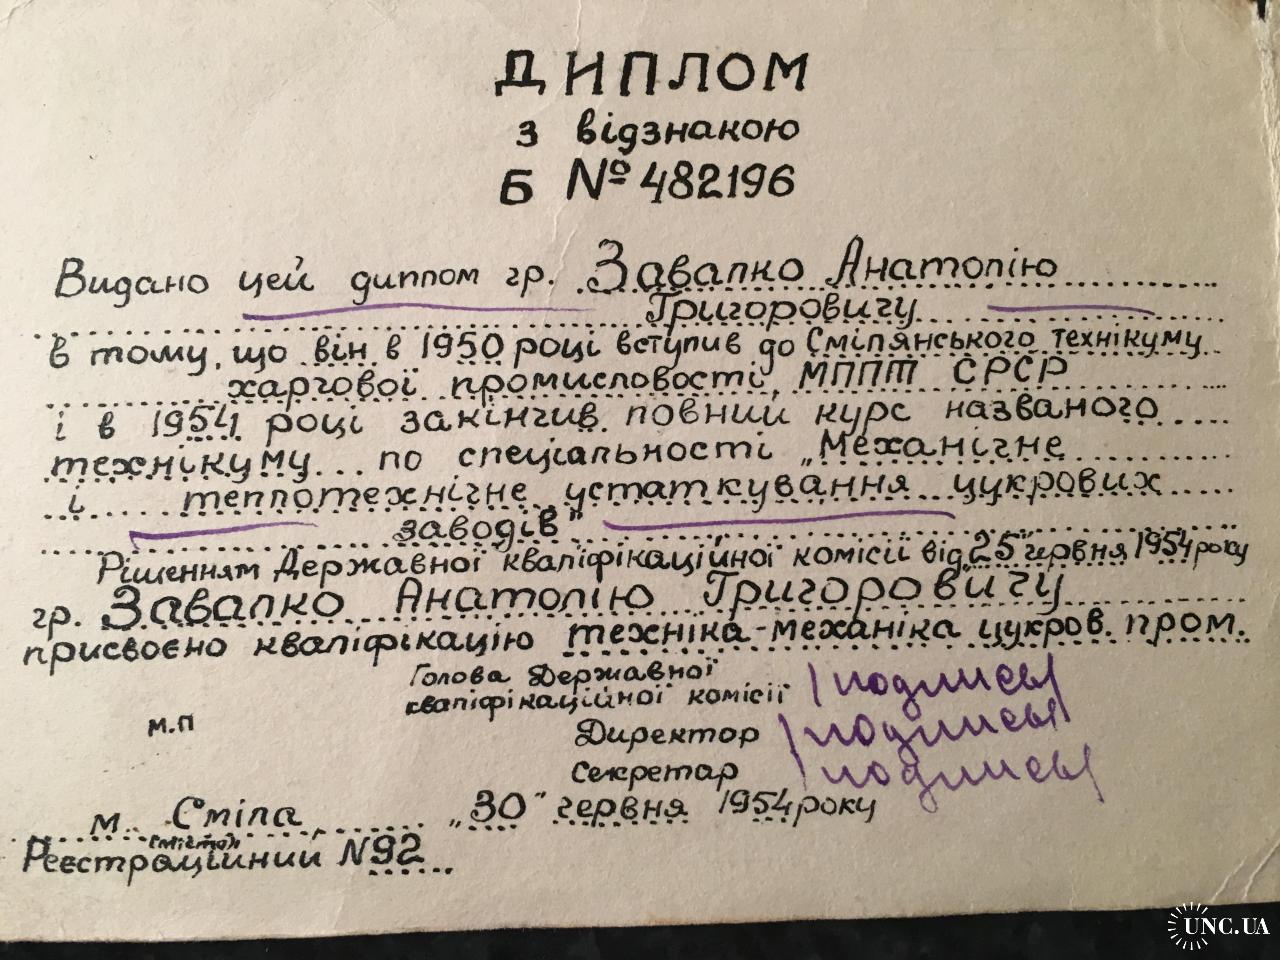 ДИПЛОМ
з відзнакою
Б № 482196
Видано цей диплом гр. Завалко Анатолію
Григоровичу
в тому, що він в 1950 році вступив до Смілянського технікуму
харчової промисловості, МППТ СРСР
і в 1954 році закінчив повний курс названого
технікуму по спеціальності „Механічне
і теплотехнічне устаткування цукрових
заводів"
Рішенням Державної кваліфікаційної комісії від „25" червня 1954 року
гр. Завалко Анатолію Григоровичу
присвоєно кваліфікацію техніка-механіка цукров. пром.
Голова Державної
кваліфікаційної комісії /подписы/
М.П
Директор /подписы/
Секретар /подписы/
м. Сміла, „30" червня 1954 року
(місто)
Реєстраційний N 92
UNC.UA